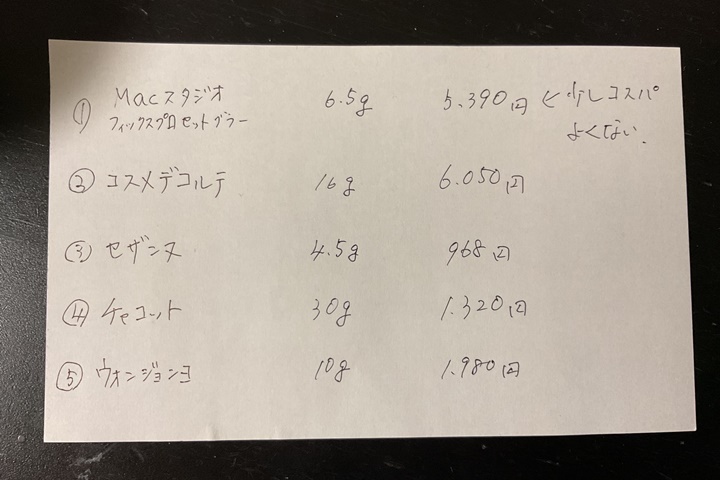 ① Macスタジオ 6.5g 5.390円 ← 少しコスパ
フィックスプロセットブラー よくない.
② コスメデコルテ 16g 6.050円
③ セザンヌ 4.5g 968円
④ チャコット 30g 1.320円
⑤ ウォンジョンヨ 10g 1.980円